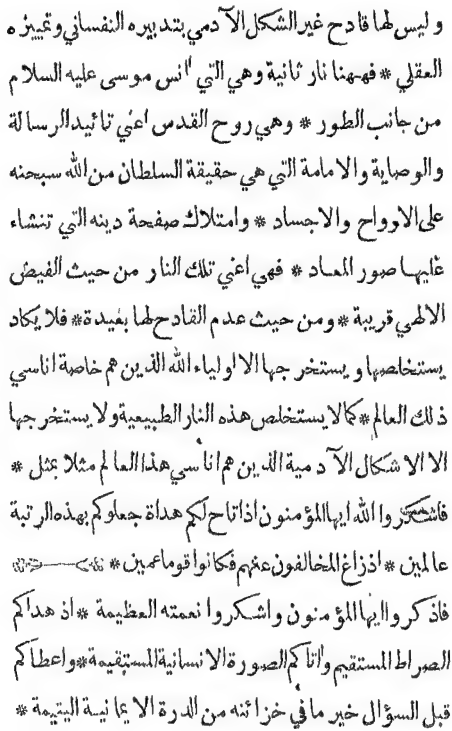 وليس لها قادح غير الشكل الآدمي بتدبيره النفساني وتمييزه
العقلي * فههنا نار ثانية وهي التي آنس موسى عليه السلام
من جانب الطور * وهي روح القدس اعني تائيد الرسالة
والوصاية والامامة التي هي حقيقة السلطان من الله سبحنه
على الارواح والاجساد * وامتلاك صفحة دينه التي تنشاء
عليها صور المعاد * فهي اعني تلك النار من حيث الفيض
الالهي قريبة * ومن حيث عدم القادح لها بعيدة * فلا يكاد
يستخلصها ويستخرجها الا اولياء الله الذين هم خاصة اناسي
ذلك العالم * كما لا يستخلص هذه النار الطبيعية ولا يستخرجها
الا الاشكال الآدمية الذين هم اناسي هذا العالم مثلا بمثل *
فاشكروا الله ايها المؤمنون اذ اتاح لكم هداة جعلوكم بهذه الرتبة
عالمين * اذ زاغ المخالفون عنهم فكانوا قوما عمين *
فاذكروا ايها المؤمنون واشكروا نعمته العظيمة * اذ هداكم
الصراط المستقيم واتاكم الصورة الانسانية المستقيمة * واعطاكم
قبل السؤال خير ما في خزائنه من الدرة الايمانية اليتيمة *